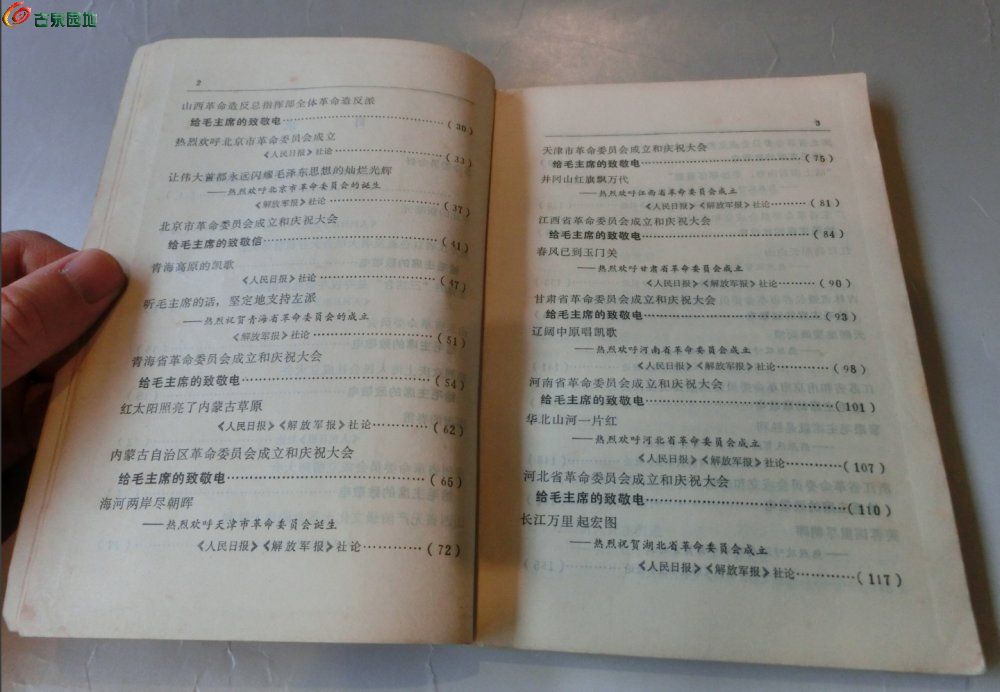 古泉园地
2
山西革命造反总指挥部全体革命造反派
给毛主席的致敬电……………………………(30)
热烈欢呼北京市革命委员会成立
《人民日报》社论……………(33)
让伟大首都永远闪耀毛泽东思想的灿烂光辉
——热烈欢呼北京市革命委员会的诞生
《解放军报》社论……………(37)
北京市革命委员会成立和庆祝大会
给毛主席的致敬信……………………………(41)
青海高原的凯歌
《人民日报》社论……………(47)
听毛主席的话，坚定地支持左派
——热烈祝贺青海省革命委员会的成立
《解放军报》社论……………(51)
青海省革命委员会成立和庆祝大会
给毛主席的致敬电……………………………(54)
红太阳照亮了内蒙古草原
《人民日报》《解放军报》社论…………(62)
内蒙古自治区革命委员会成立和庆祝大会
给毛主席的致敬电……………………………(65)
海河两岸尽朝晖
——热烈欢呼天津市革命委员会诞生
《人民日报》《解放军报》社论…………(72)
3
天津市革命委员会成立和庆祝大会
给毛主席的致敬电……………………………(75)
井冈山红旗飘万代
——热烈欢呼江西省革命委员会成立
《人民日报》《解放军报》社论…………(81)
江西省革命委员会成立和庆祝大会
给毛主席的致敬电……………………………(84)
春风已到玉门关
——热烈欢呼甘肃省革命委员会成立
《人民日报》《解放军报》社论…………(90)
甘肃省革命委员会成立和庆祝大会
给毛主席的致敬电……………………………(93)
辽阔中原唱凯歌
——热烈欢呼河南省革命委员会成立
《人民日报》《解放军报》社论…………(98)
河南省革命委员会成立和庆祝大会
给毛主席的致敬电……………………………(101)
华北山河一片红
——热烈欢呼河北省革命委员会成立
《人民日报》《解放军报》社论…………(107)
河北省革命委员会成立和庆祝大会
给毛主席的致敬电……………………………(110)
长江万里起宏图
——热烈祝贺湖北省革命委员会成立
《人民日报》《解放军报》社论…………(117)